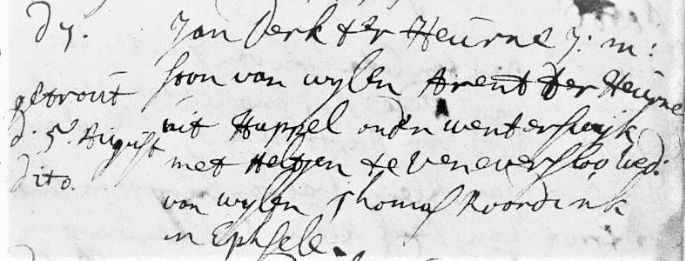 d 7. Jan Derk ter Heurne j: m:
soon van wylen Arent ter Heurne
getrout
d. 5. August uit Huppel onder Wenterswyk
dito. met Heltjen te Veneversloo wed:
van wylen Thomas Roordink
in Ephsele.